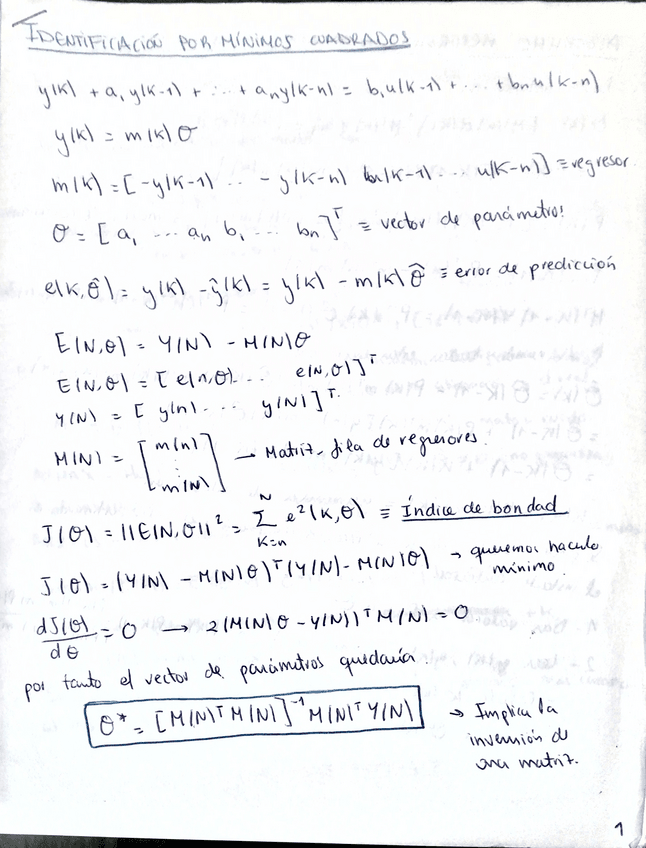 IDENTIFICACIÓN POR MÍNIMOS CUADRADOS
y(k) + a₁y(k-1) + ... + aₙy(k-n) = b₁u(k-1) + ... + bₙu(k-n)
y(k) = m(k) θ
m(k) = [-y(k-1) ... -y(k-n) u(k-1) ... u(k-n)] ≡ regresor.
θ = [a₁ ... aₙ b₁ ... bₙ]ᵀ ≡ vector de parámetros
e(k, θ̂) = y(k) - ŷ(k) = y(k) - m(k) θ̂ ≡ error de predicción
E(N,θ) = Y(N) - M(N)θ
E(N,θ) = [e(n,θ) ... e(N,θ)]ᵀ
Y(N) = [y(n) ... y(N)]ᵀ.
M(N) = [m(n) ⋮ m(N)] → Matriz-fila de regresores.
J(θ) = ||E(N,θ)||² = Σ_{k=n}^{N} e²(k,θ) ≡ Índice de bondad
J(θ) = (Y(N) - M(N)θ)ᵀ(Y(N) - M(N)θ) → queremos hacerlo mínimo.
dJ(θ)/dθ = 0 → 2(M(N)θ - Y(N))ᵀ M(N) = 0
por tanto el vector de parámetros quedaría.
θ* = [M(N)ᵀ M(N)]⁻¹ M(N)ᵀ Y(N) → Implica la inversión de una matriz.
1